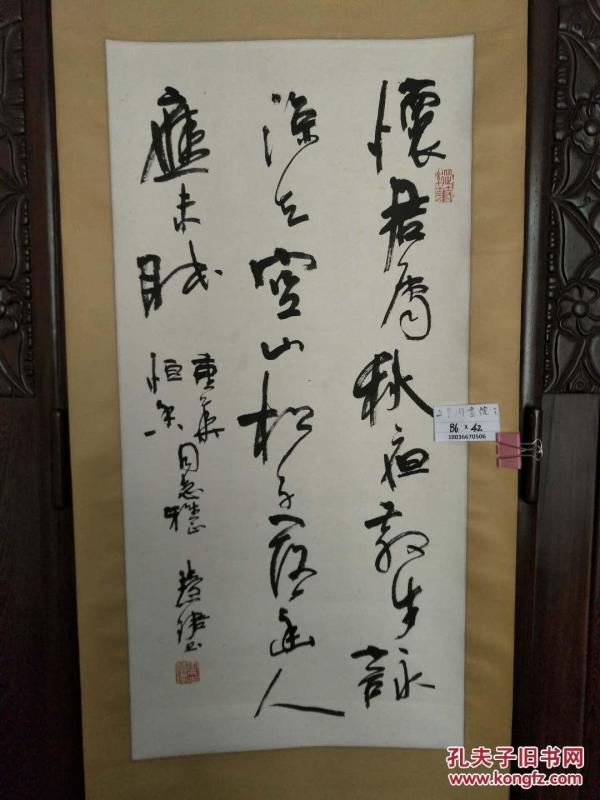 懷君属秋夜散步詠
涼天空山松子落幽人
應未眠
重華
同志雅正
86 x 42
18036670506
孔夫子旧书网
www.kongfz.com